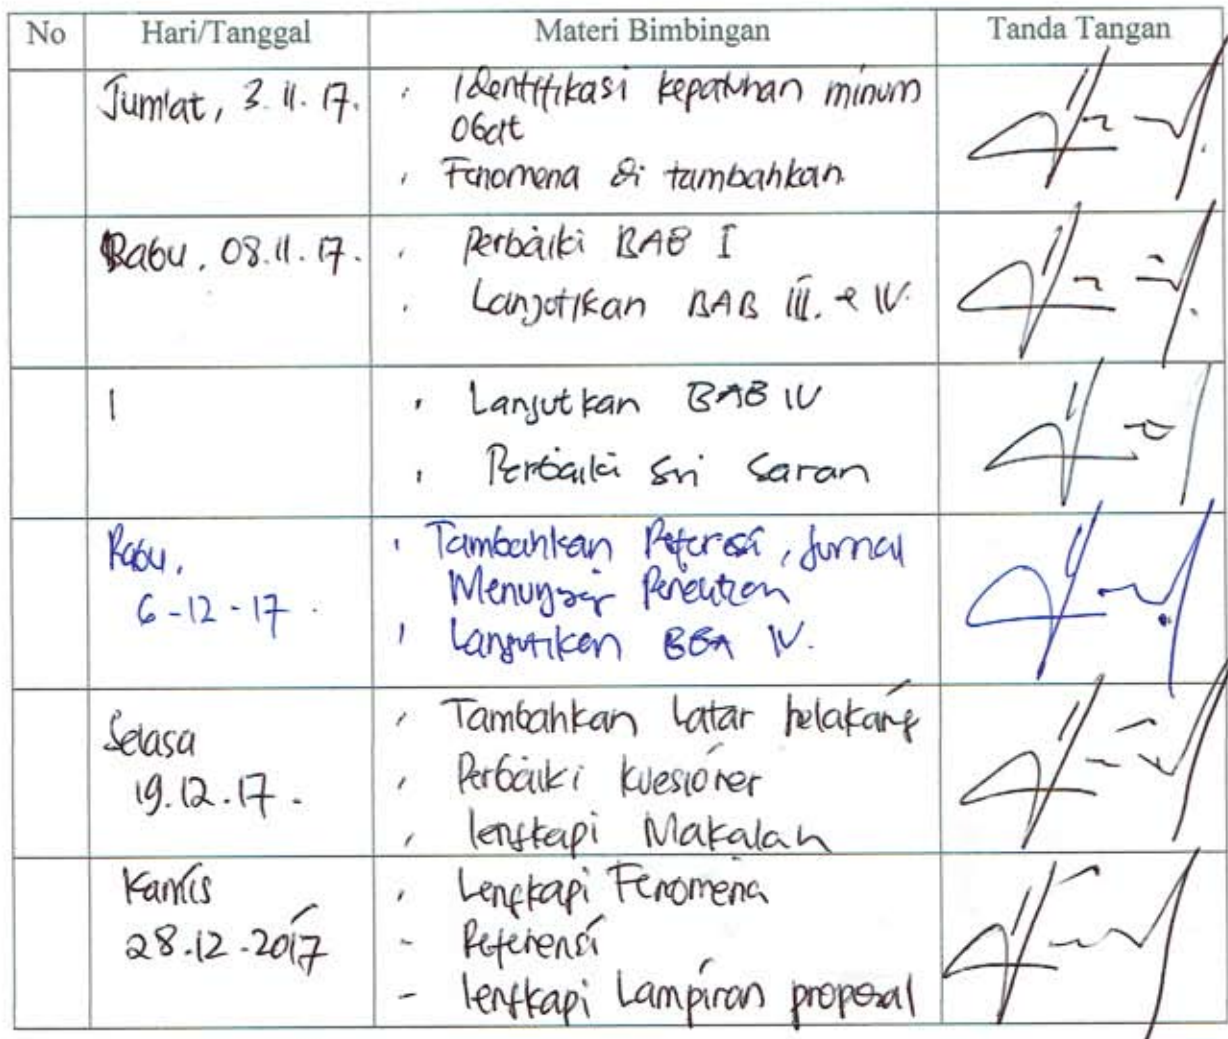 No Hari/Tanggal Materi Bimbingan Tanda Tangan
Jum'at, 3.11.17. Identifikasi kepatuhan minum
obat
Fenomena di tambahkan
Rabu, 08.11.17. Perbaiki BAB I
Lanjutkan BAB III. & IV.
Lanjutkan BAB IV
Perbaiki saran
Rabu, Tambahkan Referensi, Jurnal
6-12-17.
Lanjutkan IV.
Selasa Tambahkan Latar belakang
19.12.17. Perbaiki kuesioner
lengkapi Makalah
Kamis Lengkapi Fenomena
28.12.2017 - Referensi
- lengkapi Lampiran proposal